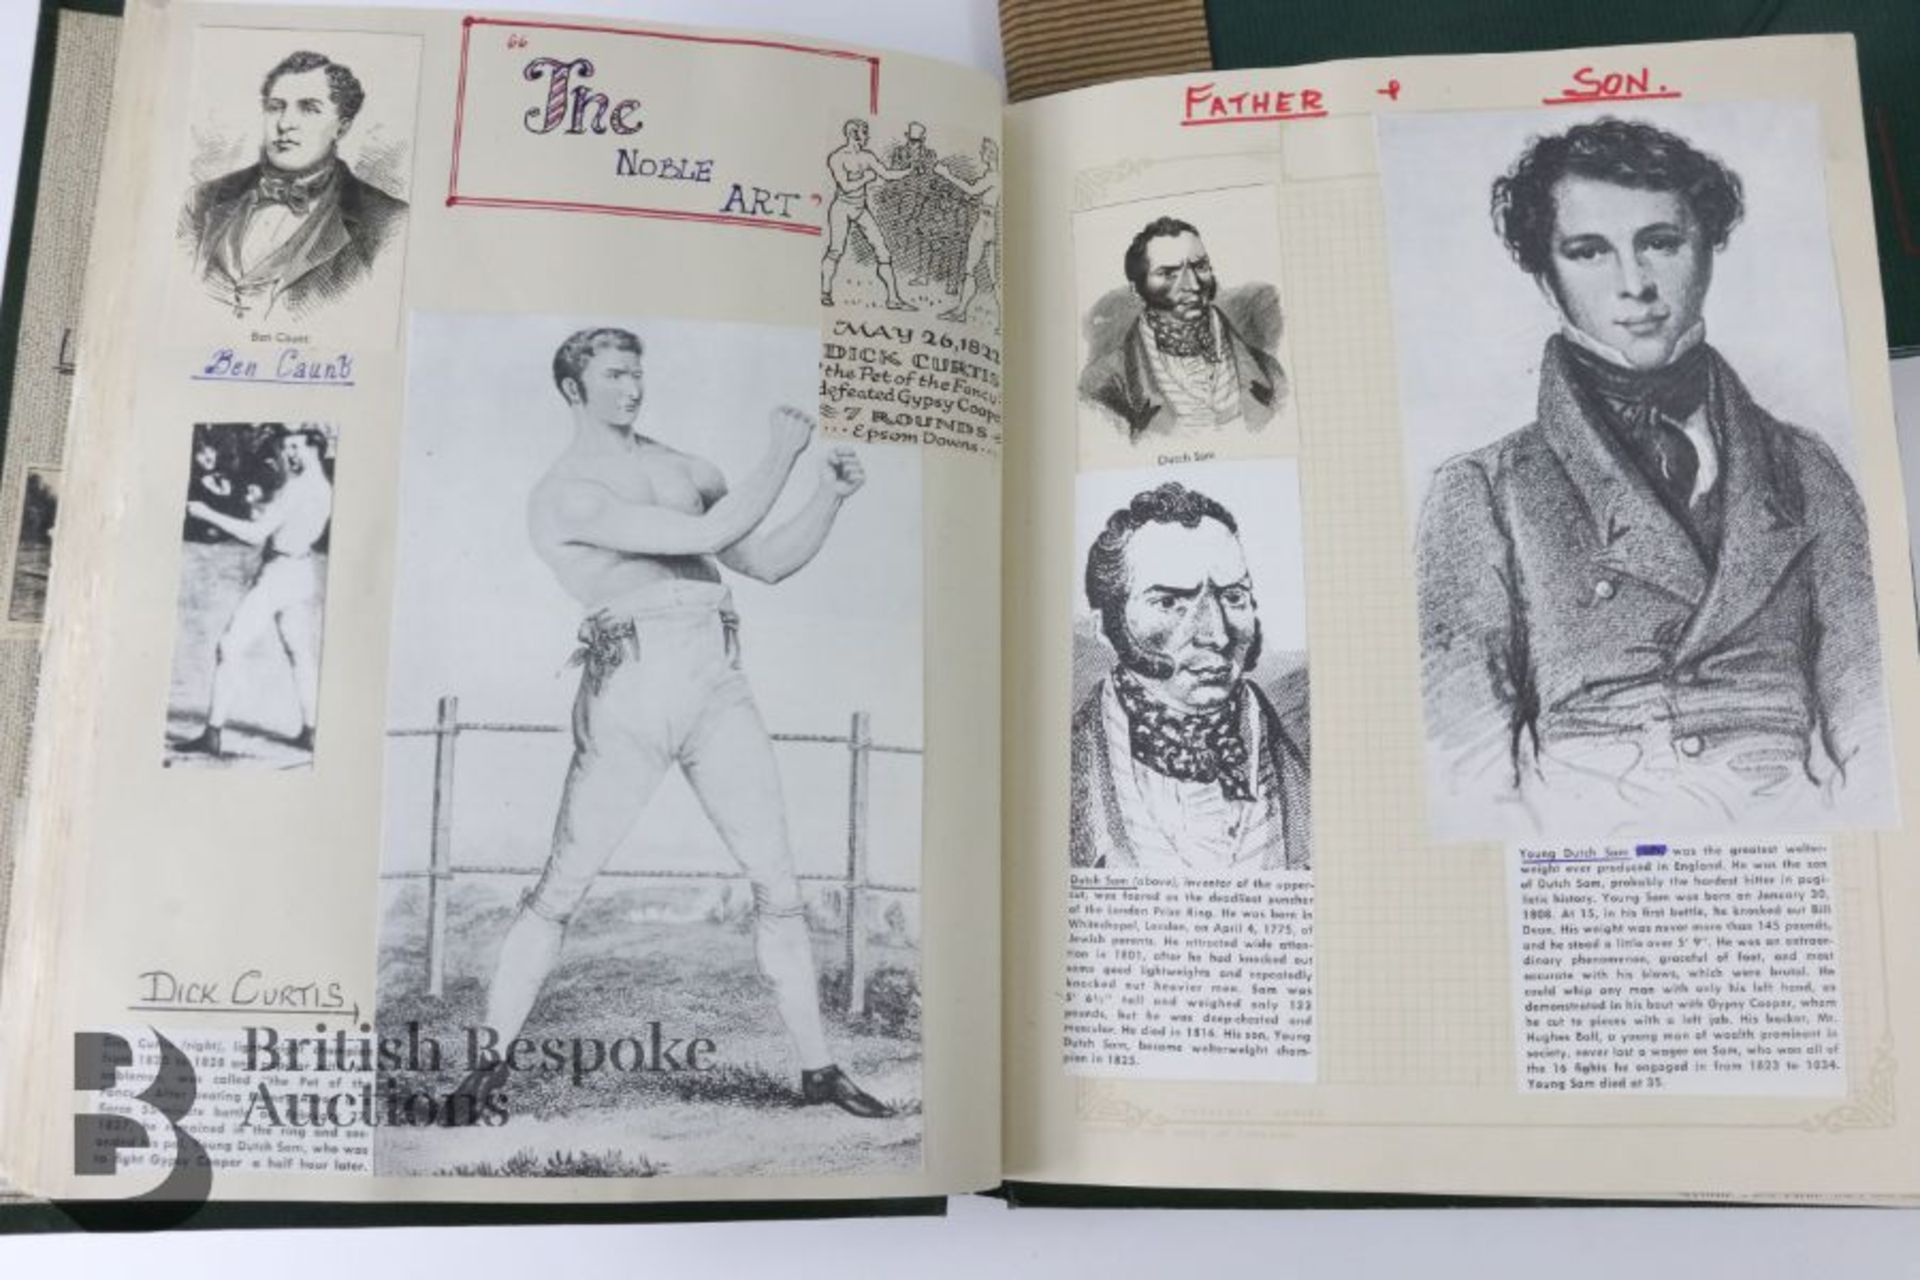 "The
NOBLE
ART"
Ben Caunt
Ben Caunt
MAY 26, 1822
DICK CURTIS
"the Pet of the Fancy"
defeated Gypsy Coope
7 ROUNDS
... Epsom Downs ...
DICK CURTIS
Dick Curtis (right),
1828
was called "the Pet of the
Fancy."
1827, he remained in the ring and sec-
onded his pal, Young Dutch Sam, who was
to fight Gypsy Cooper a half hour later.
British Bespoke
Auctions
B
FATHER + SON.
Dutch Sam
Dutch Sam (above), inventor of the upper-
cut, was feared as the deadliest puncher
of the London Prize Ring. He was born in
Whitechapel, London, on April 4, 1775, of
Jewish parents. He attracted wide atten-
tion in 1801, after he had knocked out
some good lightweights and repeatedly
knocked out heavier men. Sam was
5' 6½" tall and weighed only 133
pounds, but he was deep-chested and
muscular. He died in 1816. His son, Young
Dutch Sam, became welterweight cham-
pion in 1825.
Young Dutch Sam was the greatest welter-
weight ever produced in England. He was the son
of Dutch Sam, probably the hardest hitter in pugi-
listic history. Young Sam was born on January 30,
1808. At 15, in his first battle, he knocked out Bill
Dean. His weight was never more than 145 pounds,
and he stood a little over 5' 9". He was an extraor-
dinary phenomenon, graceful of foot, and most
accurate with his blows, which were brutal. He
could whip any man with only his left hand, as
demonstrated in his bout with Gypsy Cooper, whom
he cut to pieces with a left jab. His backer, Mr.
Hughes Ball, a young man of wealth prominent in
society, never lost a wager on Sam, who was all of
the 16 fights he engaged in from 1823 to 1834.
Young Sam died at 35.